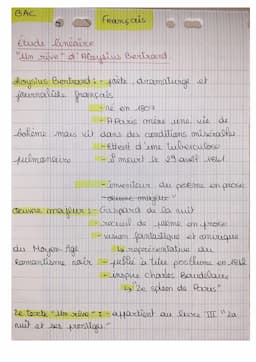 BAC
Français
Étude linéaire
"Un rêve" d'Aloysius Bertrand
Aloysius Bertrand : - poète, dramaturge et
journaliste français
- né en 1807
- A Paris mène une vie de
bohème mais vit dans des conditions misérables
- Atteint d'une tuberculose
pulmonaire - Il meurt le 29 avril 1841
- inventeur du poème en prose
oeuvre majeur :
Oeuvre majeur : - Gaspard de la nuit
- recueil de poème en prose
- vision fantastique et onirique
du Moyen-Âge ↳ représentative du
Romantisme noir - publié à titre posthume en 1842
- inspire Charles Baudelaire
↳ "Le spleen de Paris"
Le texte "Un rêve" : - appartient au livre III "La
nuit et ses prestiges"